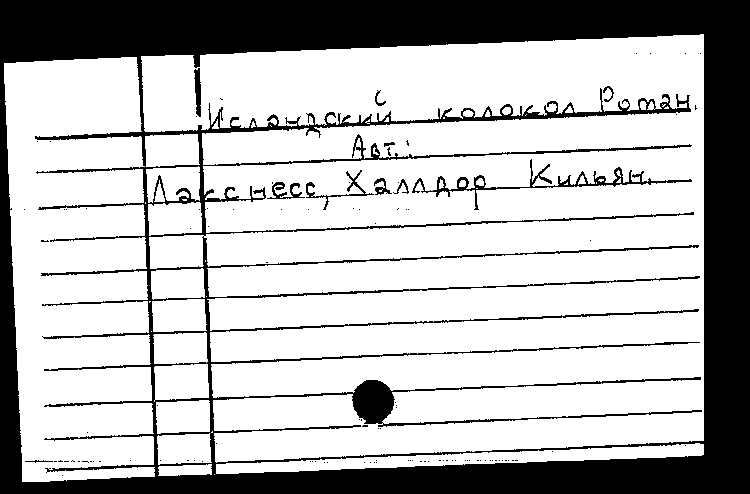 Исландский колокол Роман.
Авт.:
Лакснесс, Халлдор Кильян.